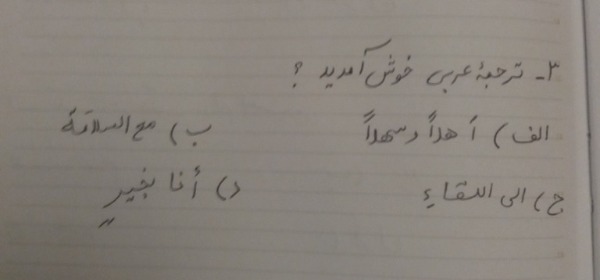 ۳- ترجمهٔ عربی خوش آمدید ؟
الف) أهلاً و سهلاً ب) مع السلامة
ج) الی اللقاءِ د) أنا بخیرٍ